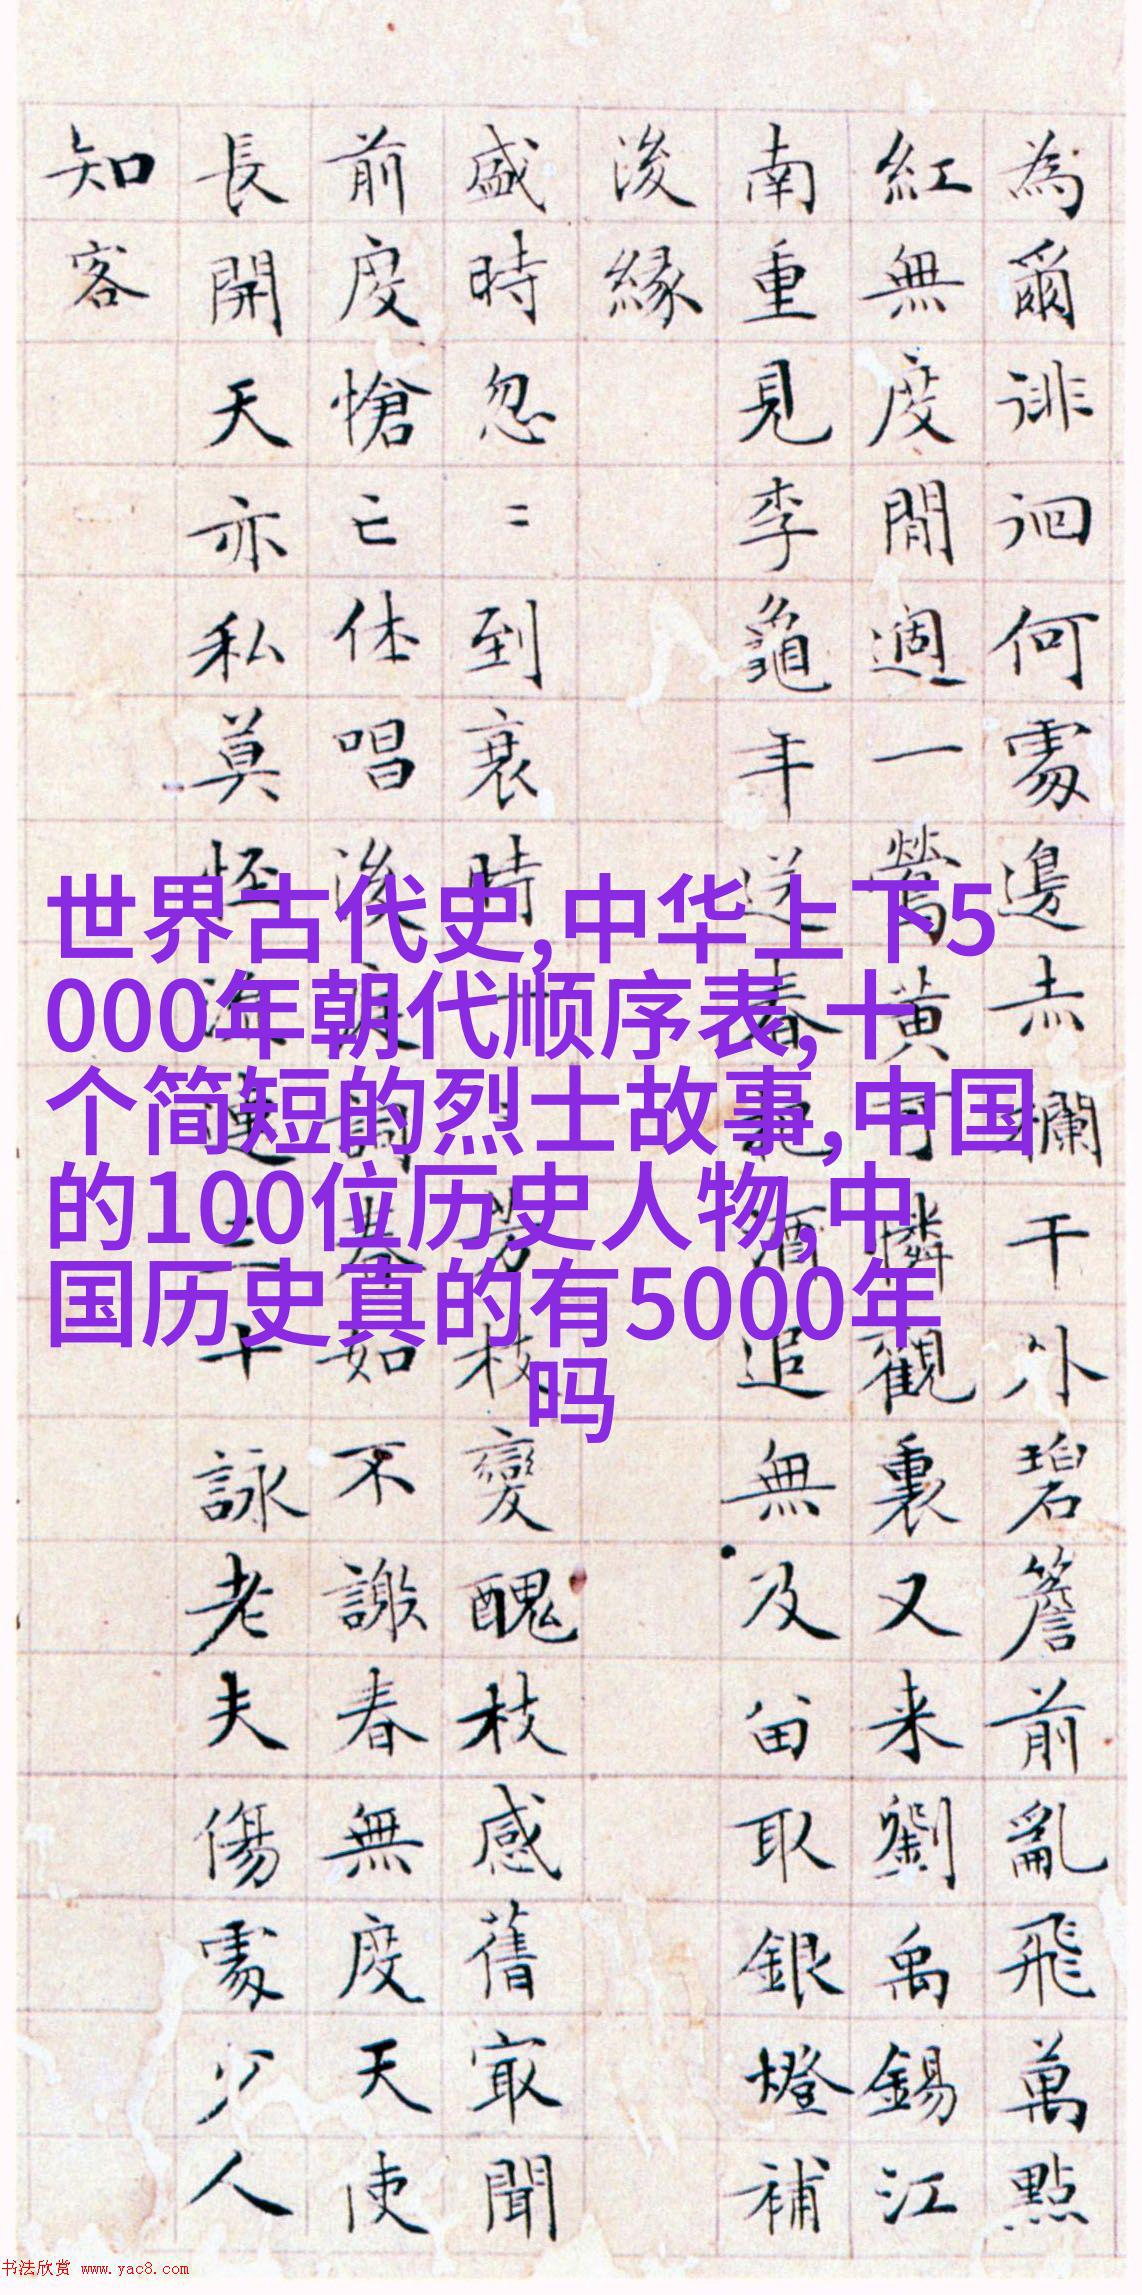 為爾徘徊何處邊赤欄干外碧簷前亂飛萬點
紅無度閒週一鶯黄可憐觀裏又来劉禹錫江
南重見李龜年送春把酒追無及留取銀燈補
後緣
盛時忽〻到衰時一一芳枝變醜枝感舊最聞
前度愴亡休唱後庭詞春如不謝春無度天使
長開天亦私莫怪流連三十詠老夫傷處少人
知客
世界古代史,中华上下5
000年朝代顺序表,十
个简短的烈士故事,中国
的100位历史人物,中
国历史真的有5000年
吗
书法欣赏 www.yac8.com